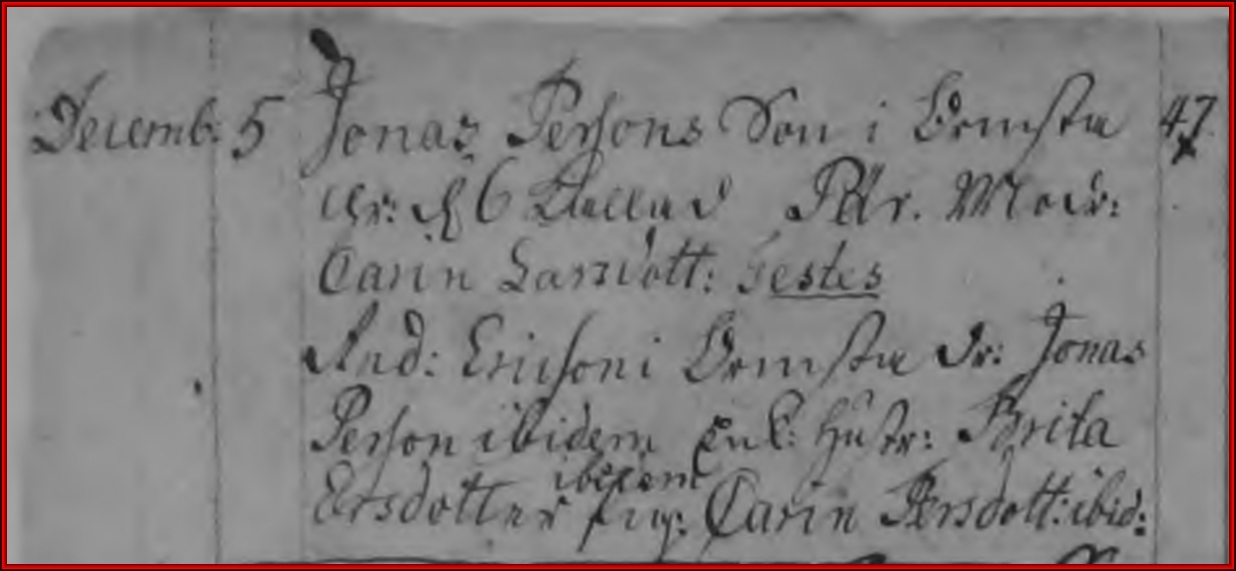 Decemb. 5 Jonas Persons Son i Ormsta 47
6 Pär. Modr:
Carin Larsdott: Testes
And: Ericson i Ormsta Dr: Jonas
Person ibidem Enk: Hustr: Brita
ibidem
Ersdotter pig: Carin Persdott: ibid: